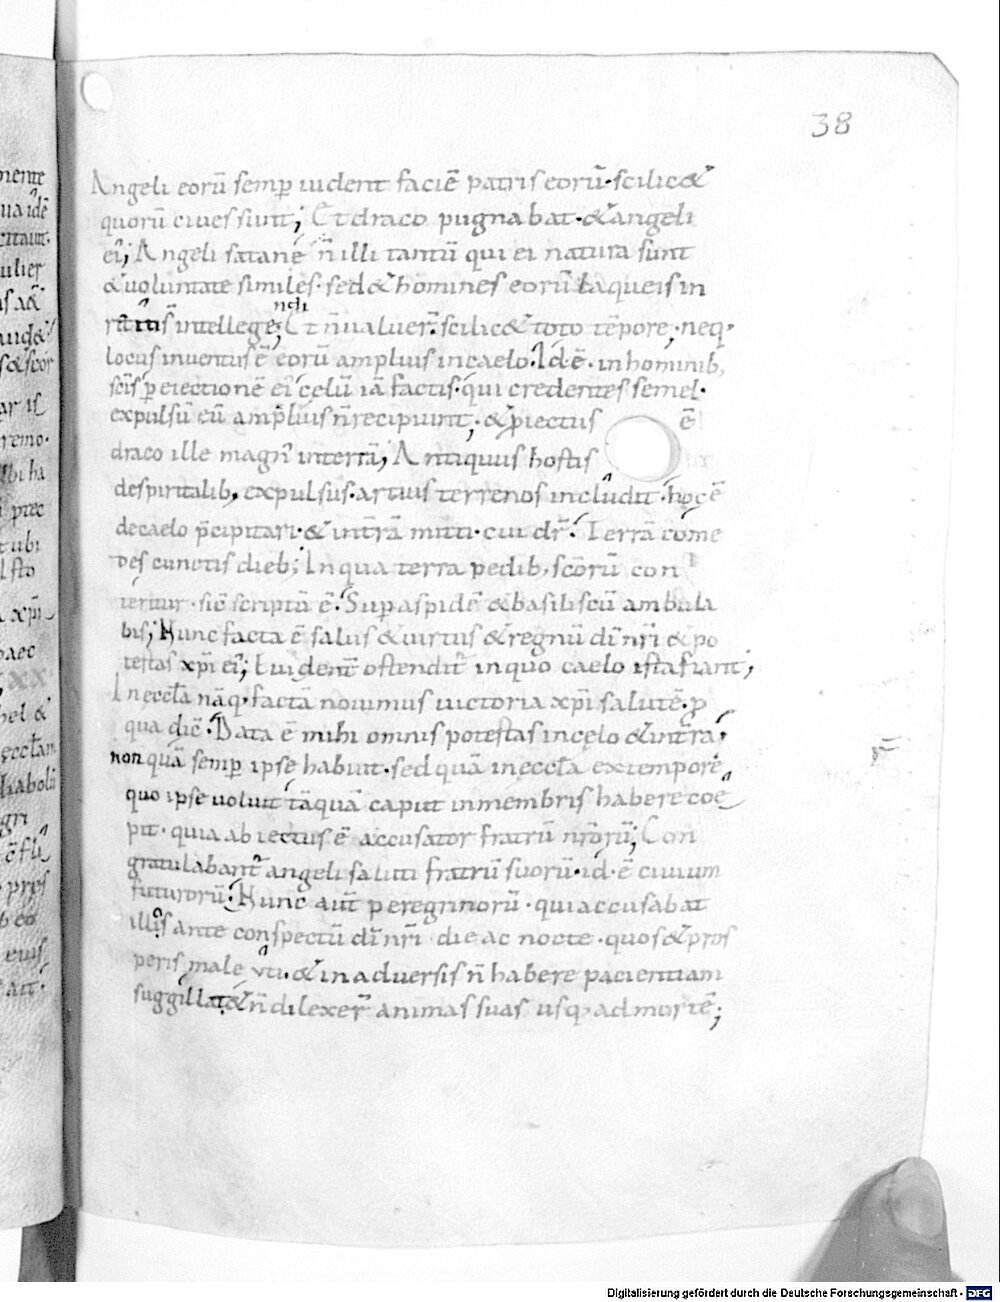 38
Angeli eorū semp uident faciē patris eorū· scilic&
quorū ciues sunt; Et draco pugnabat· & angeli
ei; Angeli satane n̄ illi tantū qui ei natura sunt
& uoluntate similes· sed & homines eorū laqueis in
intellege; Et n̄ ualuer̄· scilic& toto tēpore· neq·
locus inuentus ē eorū amplius incaelo· Id·ē· inhominib;
sc̄is p eiectionē ei celū iā factis· qui credentes semel·
expulsū eū amplius n̄ recipiunt· & piectus ē
draco ille magn' interrā; Antiquus hostis
despiritalib; expulsus· artius terrenos includit· hoc ē
decaelo p̄cipitari· & int̄rā mitti· cui dr̄· Terrā come
des cunctis dieb; In qua terra pedib; scōrū con
teritur· sic scriptū ē· Sup aspidē & basiliscū ambula
bis; Nunc facta ē salus & uirtus & regnū dī nr̄i & po
testas xp̄i ei; Euident̄ ostendit inquo caelo ista fiant;
In eccl̄a nāq· factā nouimus uictoria xp̄i salutē· p
qua dic̄· Data ē mihi omnis potestas incelo & int̄ra;
non quā semp ipse habuit· sed quā in eccl̄a extempore
quo ipse uoluit tāquā caput inmembris habere coe
pit· quia abiectus ē accusator fratrū nr̄orū; Con
gratulabant̄ angeli saluti fratrū suorū· id·ē ciuium
futurorū· Nunc aūt peregrinorū· qui accusabat
illos ante conspectū dī nr̄i die ac nocte· quos & pros
peris male uti· & inaduersis n̄ habere pacientiam
suggillat· & n̄ dilexer̄ animas suas usq· ad mortē;
Digitalisierung gefördert durch die Deutsche Forschungsgemeinschaft - DFG